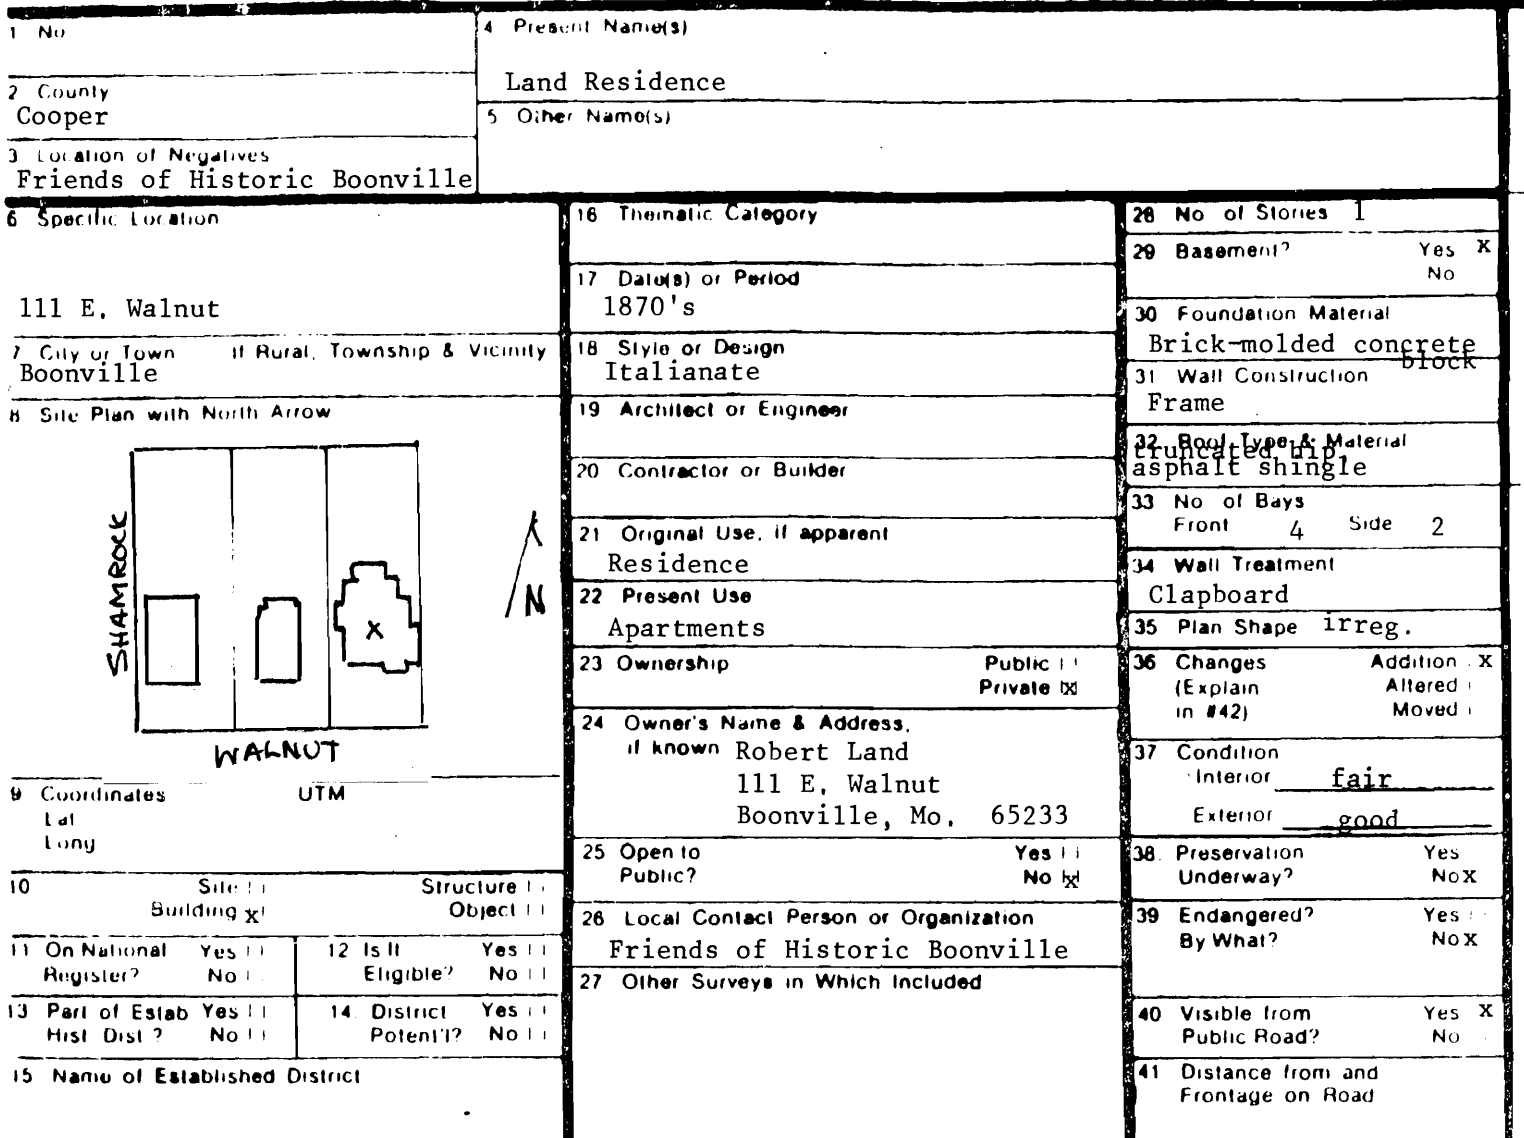 1 No
4 Present Name(s)
Land Residence
2 County
Cooper
5 Other Name(s)
3 Location of Negatives
Friends of Historic Boonville
6 Specific Location
111 E. Walnut
7 City or Town If Rural, Township & Vicinity
Boonville
8 Site Plan with North Arrow
SHAMROCK
X
N
WALNUT
9 Coordinates UTM
Lat
Long
10 Site Structure
Building x Object
11 On National Register? Yes No
12 Is It Eligible? Yes No
13 Part of Estab Hist Dist? Yes No
14 District Potent'l? Yes No
15 Name of Established District
16 Thematic Category
17 Date(s) or Period
1870's
18 Style or Design
Italianate
19 Architect or Engineer
20 Contractor or Builder
21 Original Use, if apparent
Residence
22 Present Use
Apartments
23 Ownership Public
Private x
24 Owner's Name & Address,
if known Robert Land
111 E. Walnut
Boonville, Mo. 65233
25 Open to Yes
Public? No x
26 Local Contact Person or Organization
Friends of Historic Boonville
27 Other Surveys in Which Included
28 No of Stories 1
29 Basement? Yes X
No
30 Foundation Material
Brick-molded concrete
block
31 Wall Construction
Frame
32 Roof Type & Material
truncated hip,
asphalt shingle
33 No of Bays
Front 4 Side 2
34 Wall Treatment
Clapboard
35 Plan Shape irreg.
36 Changes Addition X
(Explain Altered
in #42) Moved
37 Condition
Interior fair
Exterior good
38. Preservation Yes
Underway? No X
39 Endangered? Yes
By What? No X
40 Visible from Yes X
Public Road? No
41 Distance from and
Frontage on Road